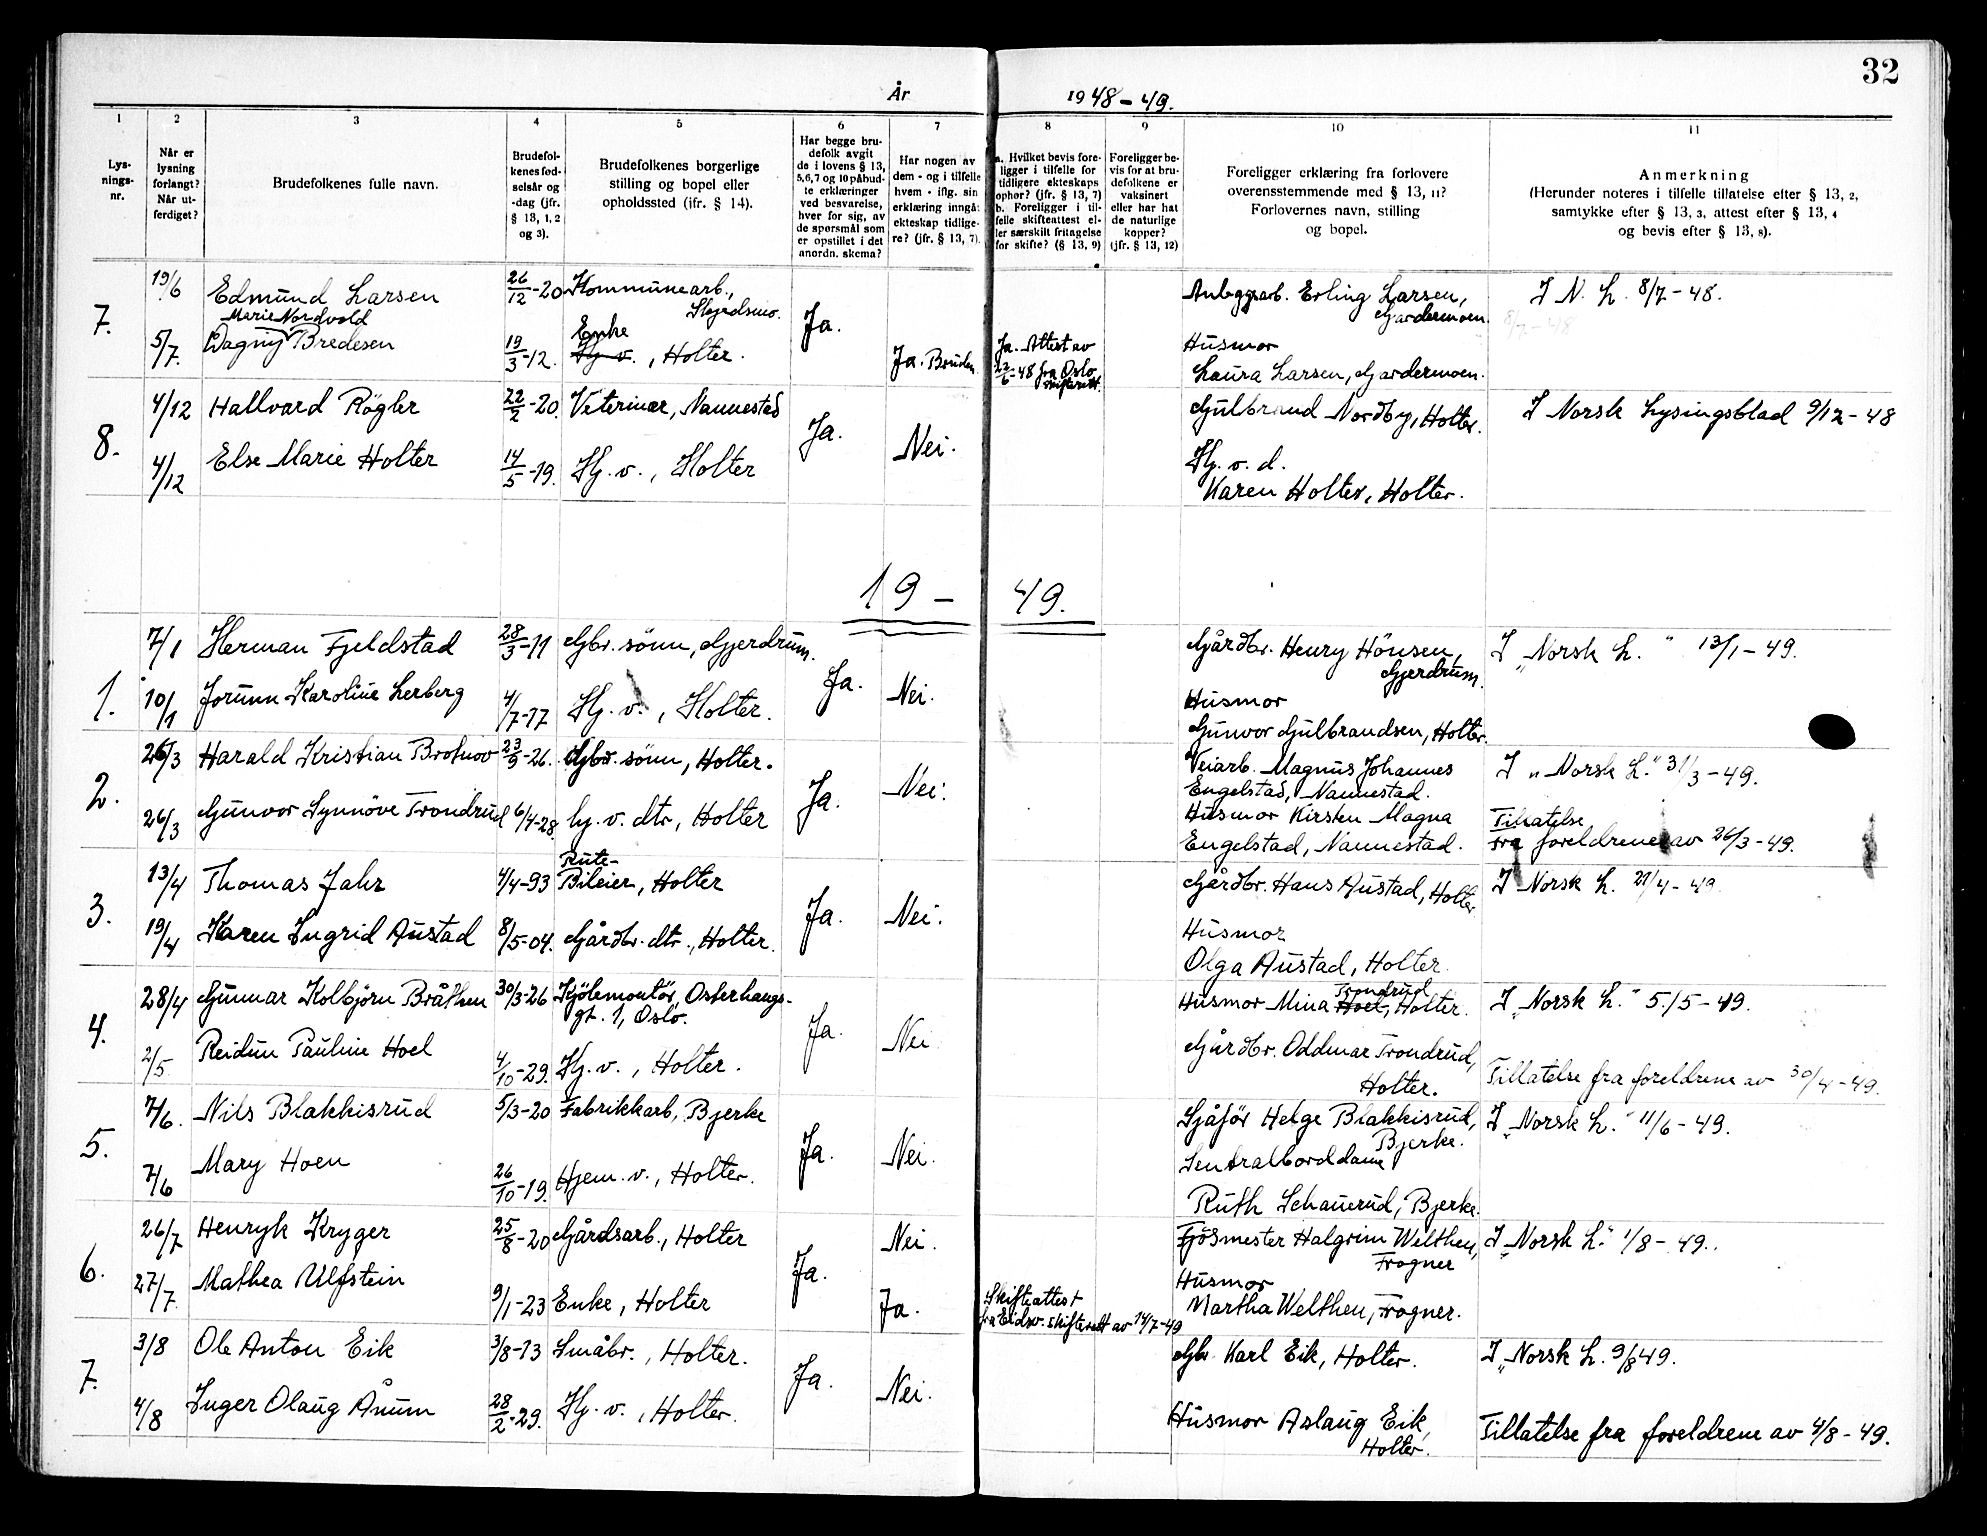 32
År 1948-49.
1 2 3 4 5 6 7 8 9 10 11
Lys-
nings-
nr.
Når er
lysning
forlangt?
Når ut-
ferdiget?
Brudefolkenes fulle navn.
Brudefol-
kenes fød-
selsår og
-dag (jfr.
§ 13, 1, 2
og 3).
Brudefolkenes borgerlige
stilling og bopel eller
opholdssted (ifr. § 14).
Har begge bru-
defolk avgit
de i lovens § 13,
5,6,7 og 10 påbud-
te erklæringer
ved besvarelse,
hver for sig, av
de spørsmål som
er opstillet i det
anordn. skema?
Har nogen av
dem - og i tilfelle
hvem - iflg. sin
erklæring inngåt
ekteskap tidlige-
re? (jfr. § 13, 7).
a. Hvilket bevis fore-
ligger i tilfelle for
tidligere ekteskaps
ophør? (jfr. § 13, 7)
b. Foreligger i til-
felle skifteattest el-
ler særskilt fritagelse
for skifte? (§ 13, 9)
Foreligger be-
vis for at bru-
defolkene er
vaksinert
eller har hat
de naturlige
kopper?
(jfr. § 13, 12)
Foreligger erklæring fra forlovere
overensstemmende med § 13, 11?
Forlovernes navn, stilling
og bopel.
Anmerkning
(Herunder noteres i tilfelle tillatelse efter § 13, 2,
samtykke efter § 13, 3, attest efter § 13, 4
og bevis efter § 13, 8).
7. 19/6 Edmund Larsen 26/12-20 Kommunearb., Skjedsmo. Ja. Anleggsarb. Erling Larsen, Gardermoen. I N. L. 8/7-48.
Marie Nordvold
5/7. Dagny Bredesen 19/3-12. Enke Hj. v., Holter. Ja. Bruden Ja. Attest av 22/6-48 fra Oslo skifterett. Husmor
Laura Larsen, Gardermoen.
8. 4/12 Hallvard Rögler 22/2-20. Veterinær, Nannestad Ja. Nei. Gulbrand Nordby, Holter. I Norsk Lysingsblad 9/12-48
4/12 Else Marie Holter 14/5-19. Hj. v., Holter Hj. v. d.
Karen Holter, Holter.
19 - 49.
1. 7/1 Herman Fjeldstad 28/3-11 Gbr. sönn, Gjerdrum. Ja. Nei. Gårdbr. Henry Hönsen, Gjerdrum. I „Norsk L." 13/1-49.
10/1 Jorunn Karoline Lerberg 4/7-17 Hj. v., Holter. Husmor
Gunvor Gulbrandsen, Holter.
2. 26/3 Harald Kristian Brotnov 23/9-26. Gbr. sönn, Holter. Ja. Nei. Veiarb. Magnus Johannes
Engelstad, Nannestad. I „Norsk L." 31/3-49.
26/3 Gunvor Synnöve Trondrud 6/4-28. hj. v. dtr, Holter Husmor Kirsten Magna
Engelstad, Nannestad. Tillatelse
fra foreldrene av 26/3-49.
3. 13/4 Thomas Jahr 4/4-93 Rute-
Bileier, Holter Ja. Nei. Gårdbr. Hans Austad, Holter I Norsk L. 21/4-49
19/4 Karen Ingrid Austad 8/5-04. Gårdbr. dtr., Holter. Husmor
Olga Austad, Holter.
4. 28/4 Gunnar Kolbjörn Bråthen 30/3-26 Kjölemontör, Osterhaugs-
gt. 1, Oslo. Ja. Nei Husmor Mina Hoel, Trondrud Holter. I „Norsk L." 5/5-49.
2/5 Reidun Pauline Hoel 4/10-29. Hj. v., Holter. Gårdbr. Oddmar Trondrud,
Holter. Tillatelse fra foreldrene av 30/4-49.
5. 7/6. Nils Blakkisrud 5/3-20 Fabrikkarb, Bjerke Ja. Nei. Sjåför Helge Blakkisrud,
Bjerke. I „Norsk L." 11/6-49.
7/6 Mary Hoen 26/10-19. Hjem. v., Holter. Sentralborddame
Ruth Schauerud, Bjerke.
6. 26/7 Henryk Kryger 25/8-20 Gårdsarb., Holter Ja. Nei. Fjösmester Halgrim Welthen,
Frogner I „Norsk L." 1/8-49.
27/7. Mathea Ulfstein 9/1-23 Enke, Holter Ja. Skifteattest
fra Eidsv. skifterett av 14/7-49 Husmor
Martha Welthen, Frogner.
7. 3/8 Ole Anton Eik 3/8-13 Småbr., Holter. Ja. Nei. Gbr. Karl Eik, Holter. I „Norsk L. 9/8 49.
4/8 Inger Olaug Ånum 28/2-29. Hj. v., Holter. Husmor Aslaug Eik,
Holter. Tillatelse fra foreldrene av 4/8-49.